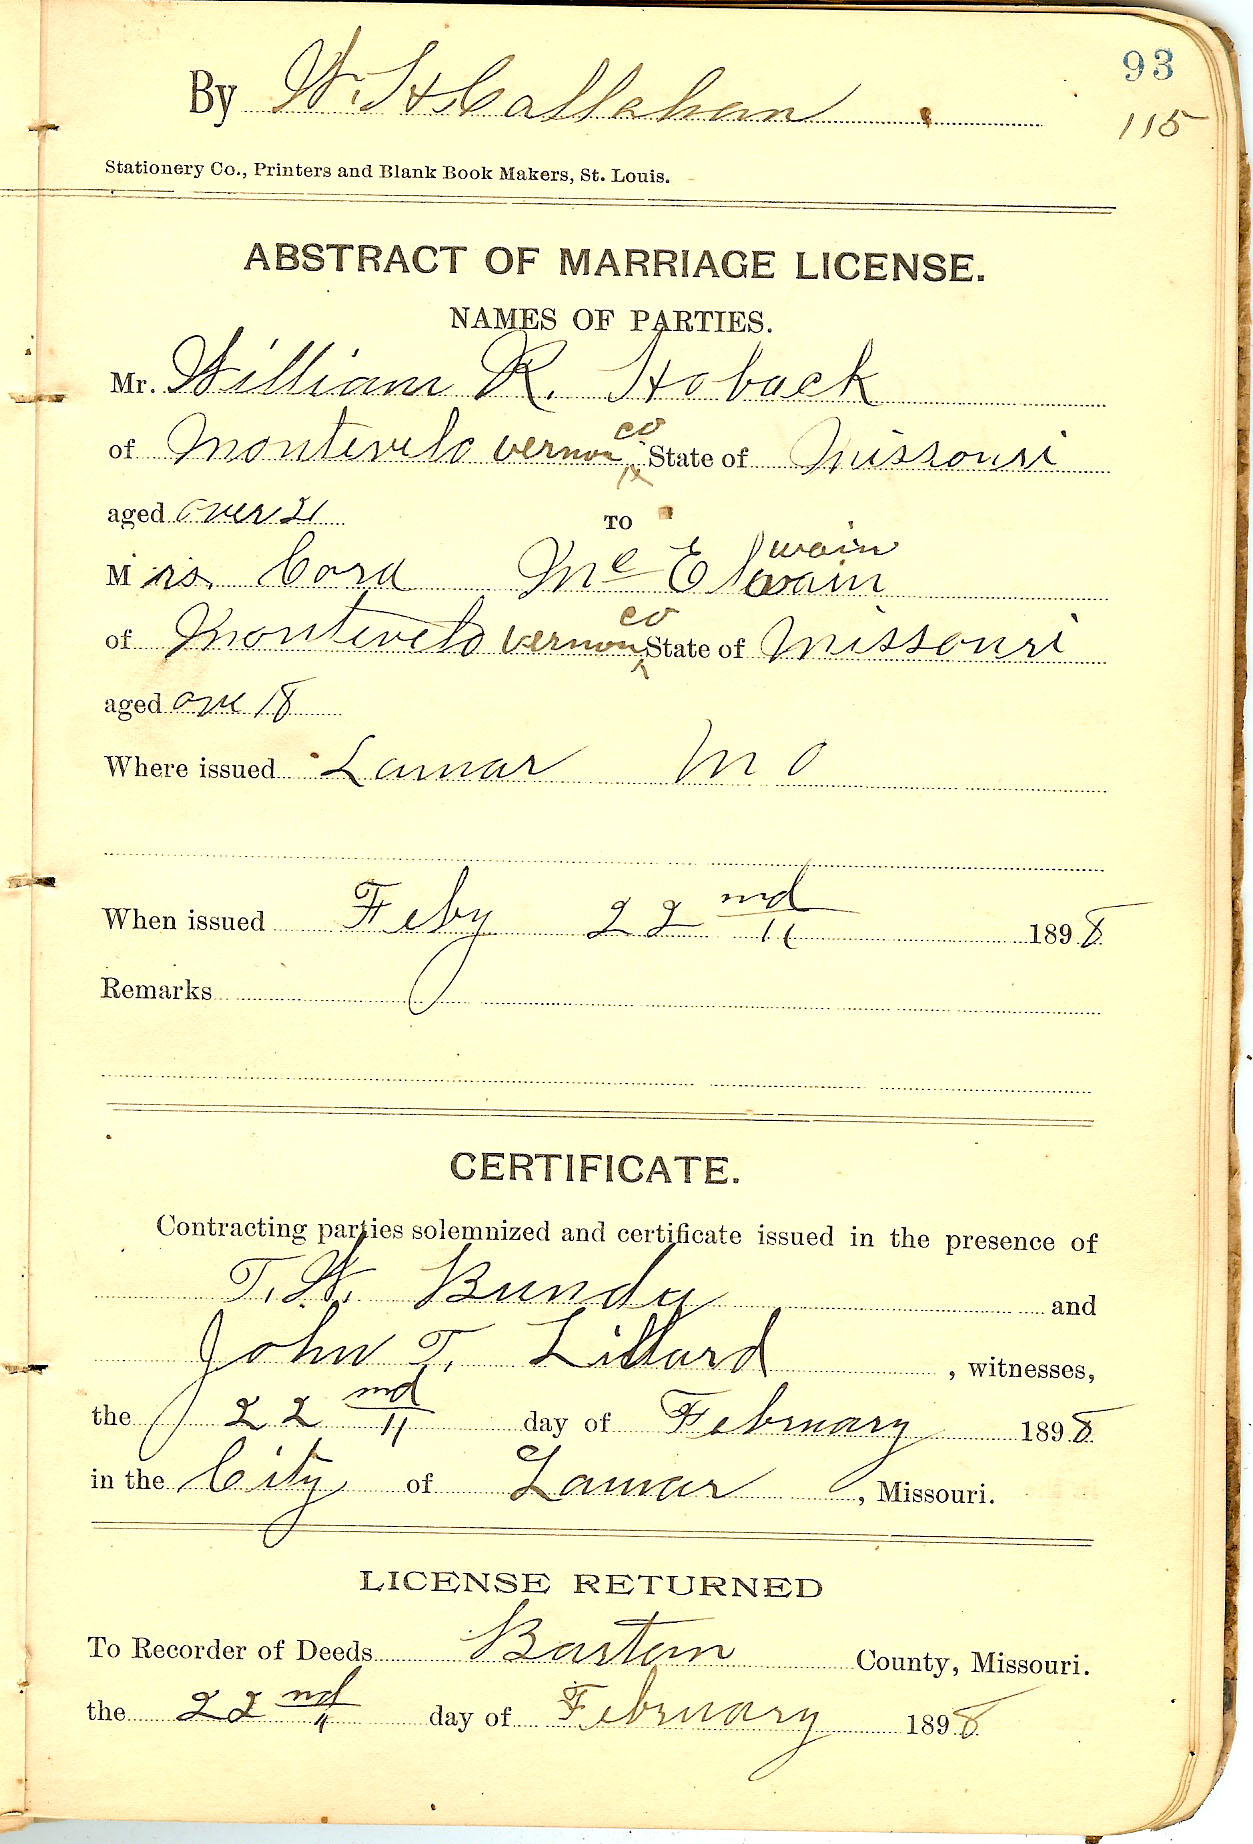 93
115
By W. H. Callahan
Stationery Co., Printers and Blank Book Makers, St. Louis.
ABSTRACT OF MARRIAGE LICENSE.
NAMES OF PARTIES.
Mr. William R. Hoback
of Montevelo Vernon co State of Missouri
aged over 21 TO
Mrs. Cora McElwain wain
of Montevelo Vernon co State of Missouri
aged over 18
Where issued Lamar Mo
When issued Feby 22nd 1898
Remarks
CERTIFICATE.
Contracting parties solemnized and certificate issued in the presence of
T. W. Bundy and
John T. Lillard, witnesses,
the 22nd day of February 1898
in the City of Lamar, Missouri.
LICENSE RETURNED
To Recorder of Deeds Barton County, Missouri.
the 22nd day of February 1898